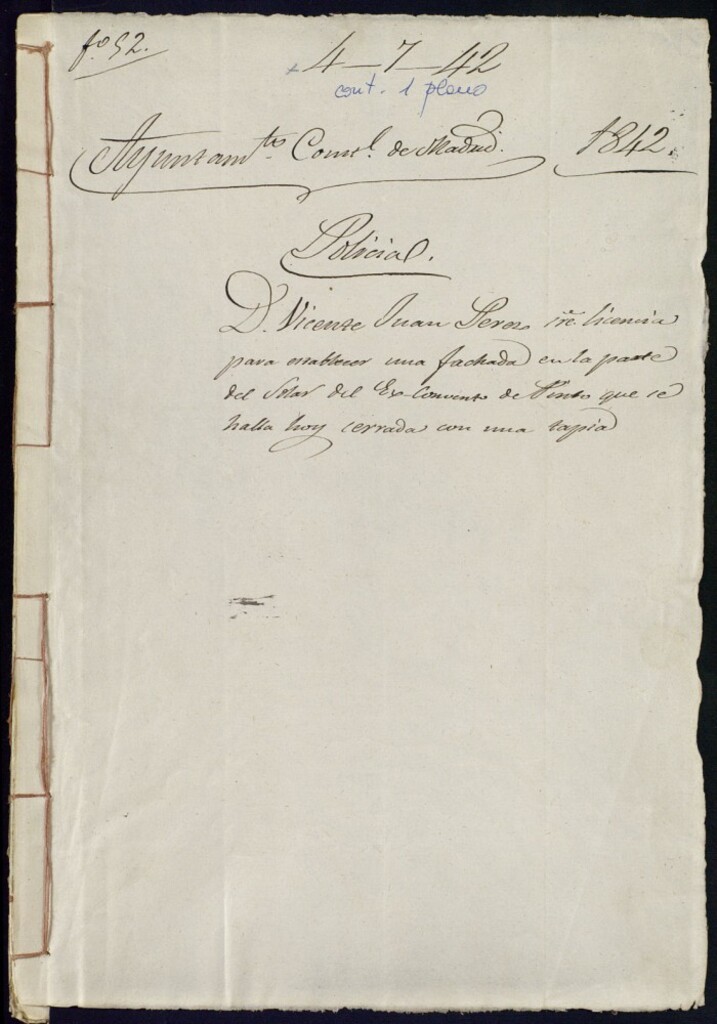 fº 52.
4-7-42
cont. 1 plano
Ayuntamto. Consl. de Madrid. 1842.
Policia.
D. Vicente Juan Perez sre. licencia
para establecer una fachada en la parte
del Solar del Ex-Convento de Pinto que se
halla hoy cerrada con una tapia